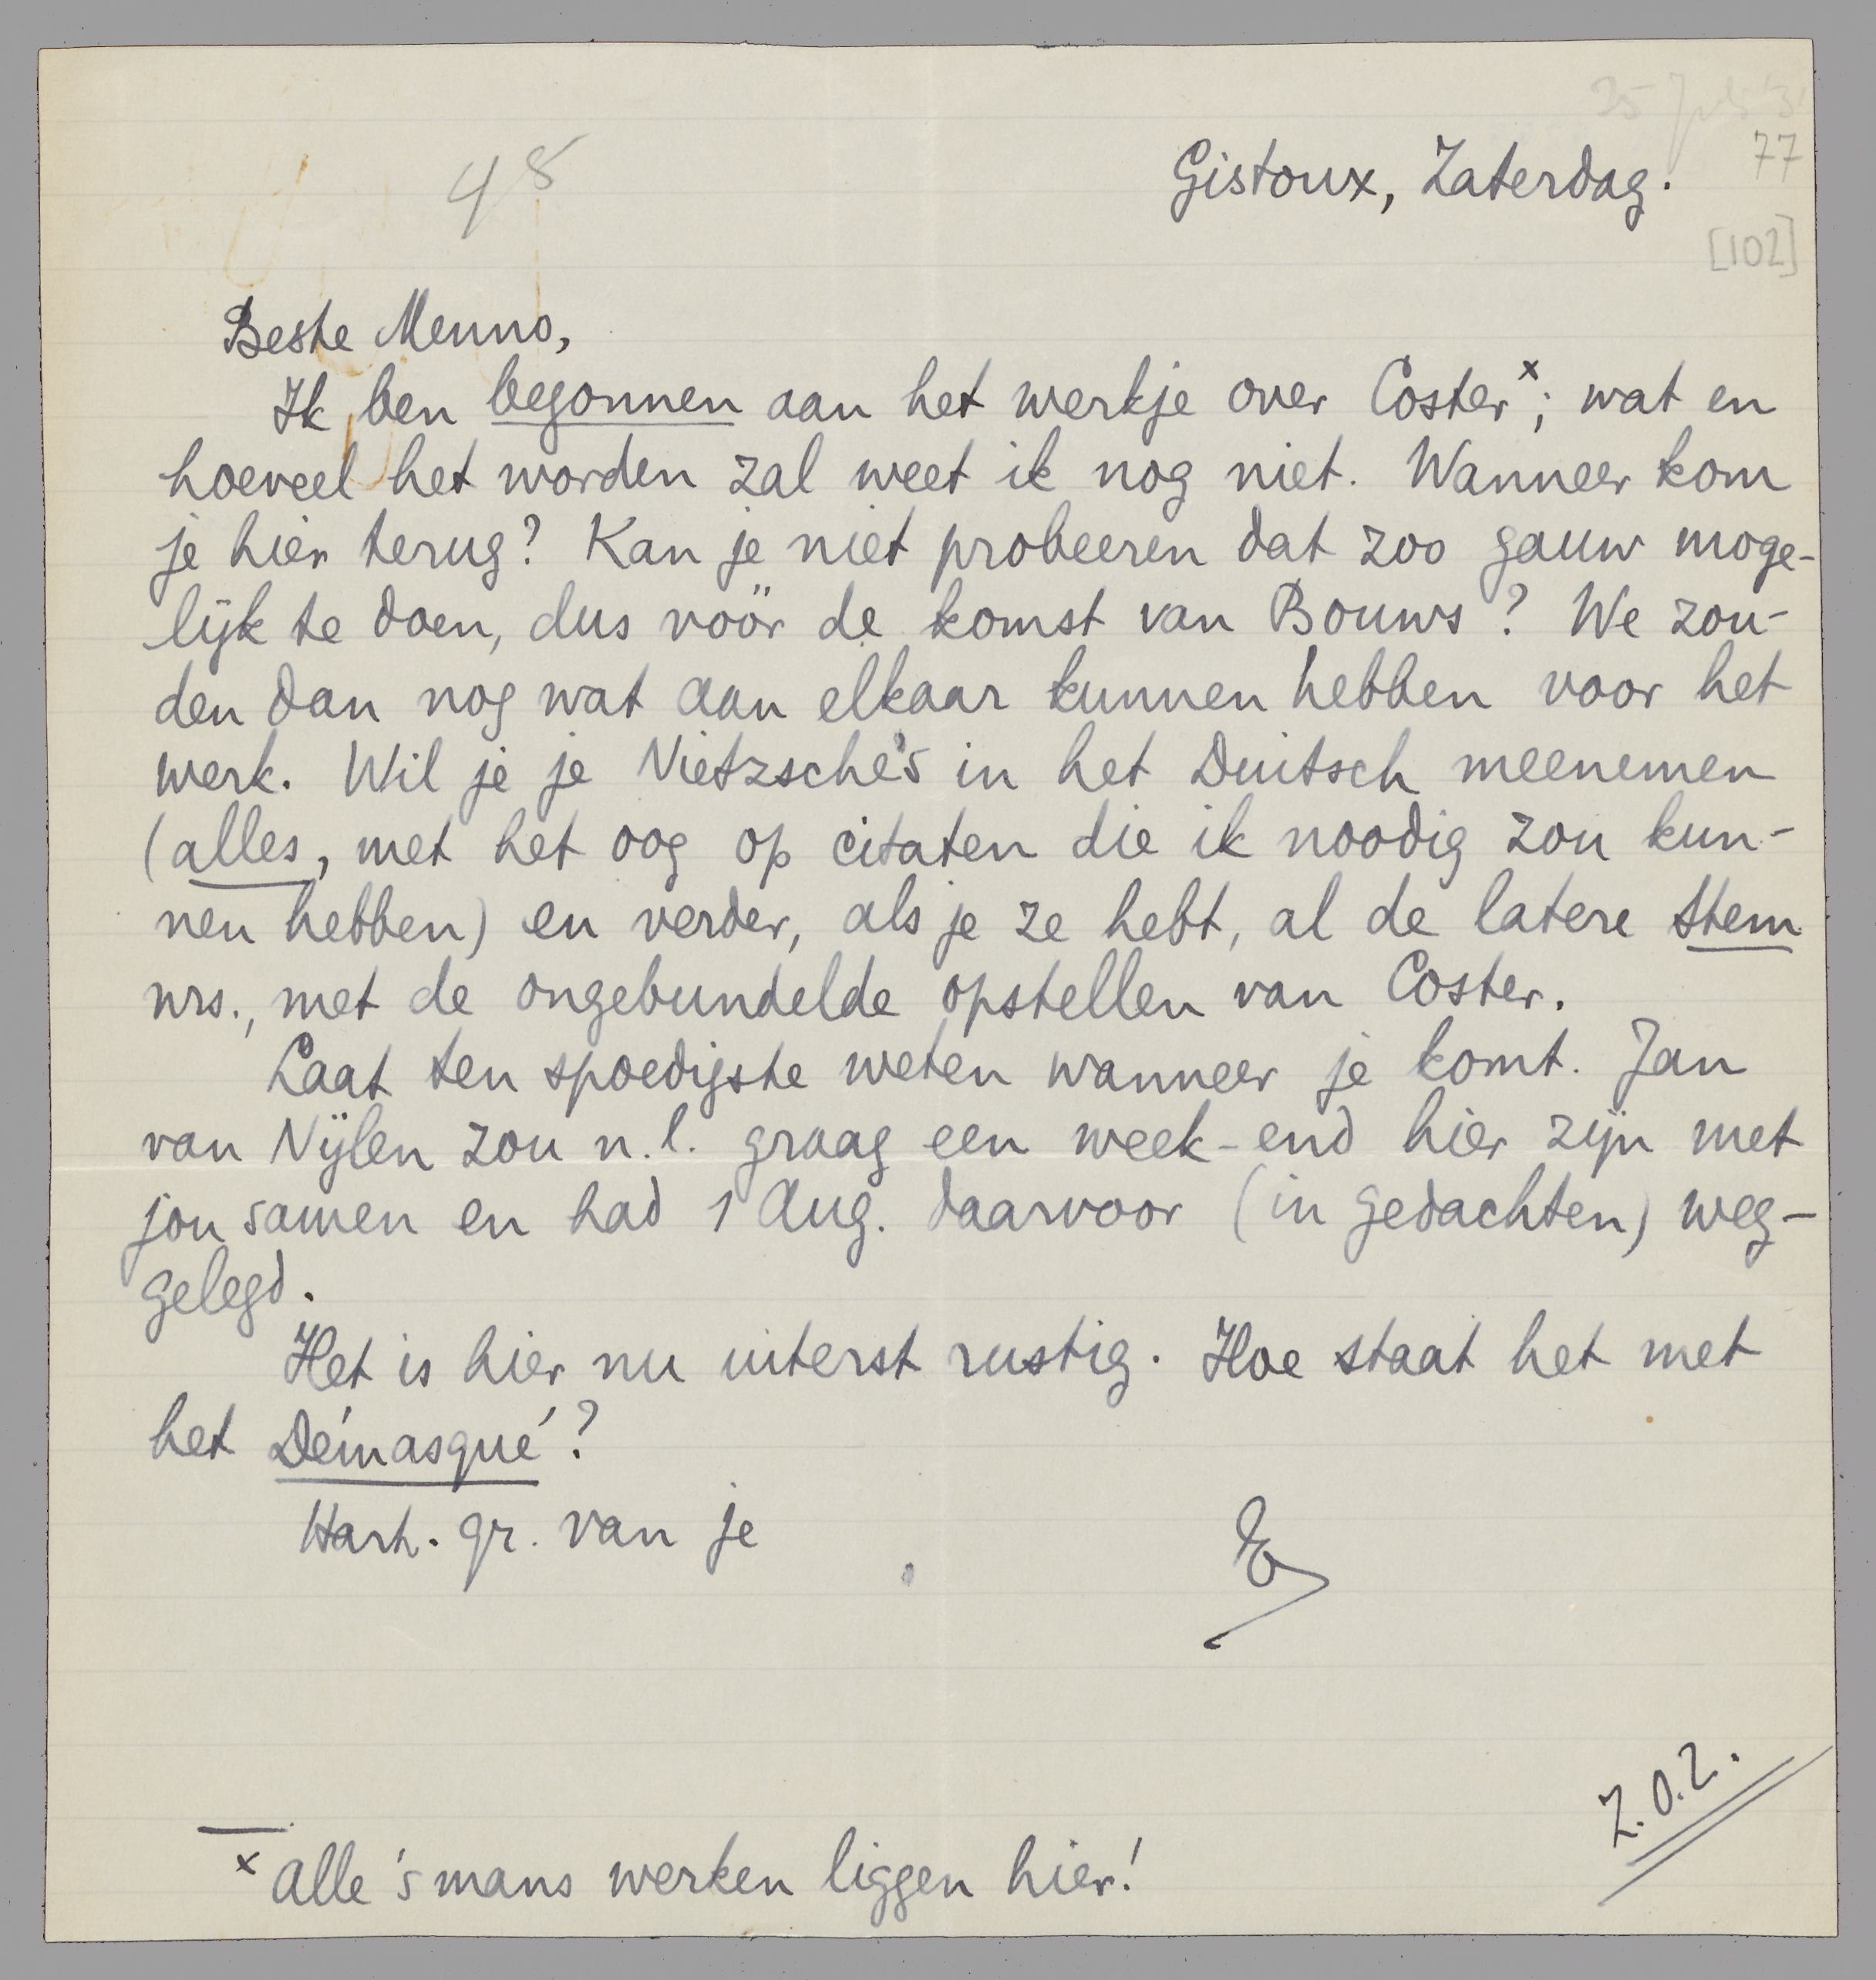 25 Juli '31
77
48
Gistoux, Zaterdag.
[102]
Beste Menno,
Ik ben begonnen aan het werkje over Coster x; wat en
hoeveel het worden zal weet ik nog niet. Wanneer kom
je hier terug? Kan je niet probeeren dat zoo gauw moge-
lijk te doen, dus vóór de komst van Bouws? We zou-
den dan nog wat aan elkaar kunnen hebben voor het
werk. Wil je je Nietzsche's in het Duitsch meenemen
(alles, met het oog op citaten die ik noodig zou kun-
nen hebben) en verder, als je ze hebt, al de latere Stem
nrs., met de ongebundelde opstellen van Coster.
Laat ten spoedigste weten wanneer je komt. Jan
van Nijlen zou n.l. graag een week-end hier zijn met
jou samen en had 1 Aug. daarvoor (in gedachten) weg-
gelegd.
Het is hier nu uiterst rustig. Hoe staat het met
het Démasqué?
Hart. gr. van je
E
Z.O.Z.
x Alle 's mans werken liggen hier!